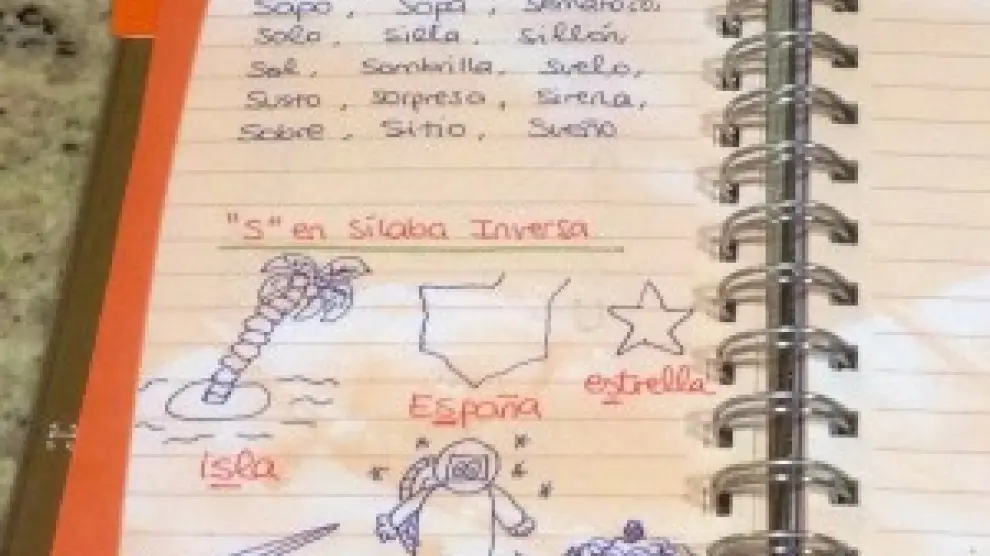 Sapo, Sopa, Semáforo,
Sola, Silla, Sillón,
Sol, Sombrilla, Suelo,
Susto, Sorpresa, Sirena,
Sobre, Sitio, Sueño
"S" en Sílaba Inversa
estrella
España
isla